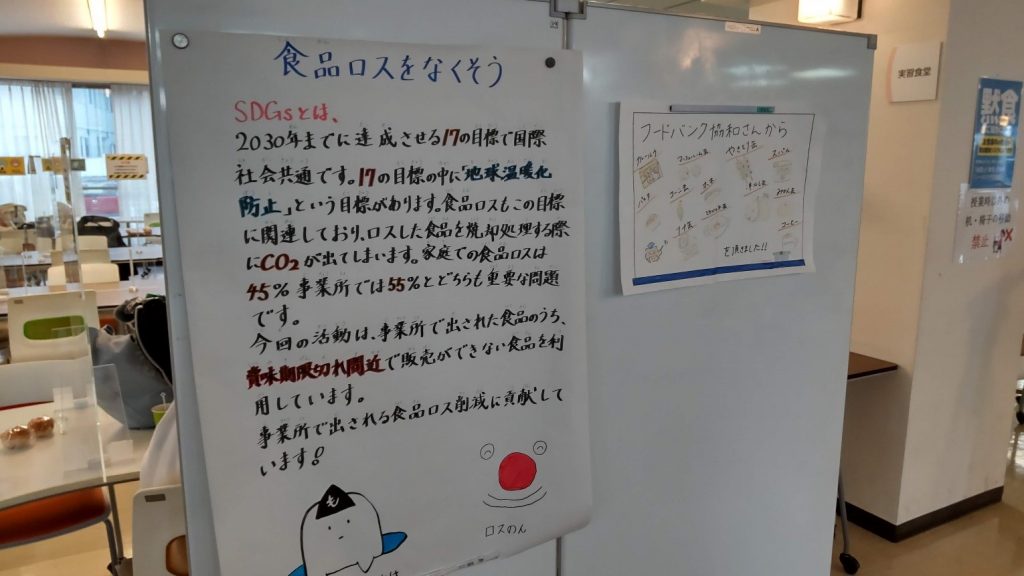 食品ロスをなくそう
SDGsとは、
2030年までに達成させる17の目標で国際
社会共通です。17の目標の中に「地球温暖化
防止」という目標があります。食品ロスもこの目標
に関連しており、ロスした食品を焼却処理する際
にCO2が出てしまいます。家庭での食品ロスは
45%事業所では55%とどちらも重要な問題
です。
今回の活動は、事業所で出された食品のうち、
賞味期限切れ間近で販売ができない食品を利
用しています。
事業所で出される食品ロス削減に貢献して
います!
も
ロスのん
フードバンク協和さんから
やきとり缶
コーン缶
パスタ
ツナ缶
コーヒー
を頂きました!!
実習食堂
黙食
禁止